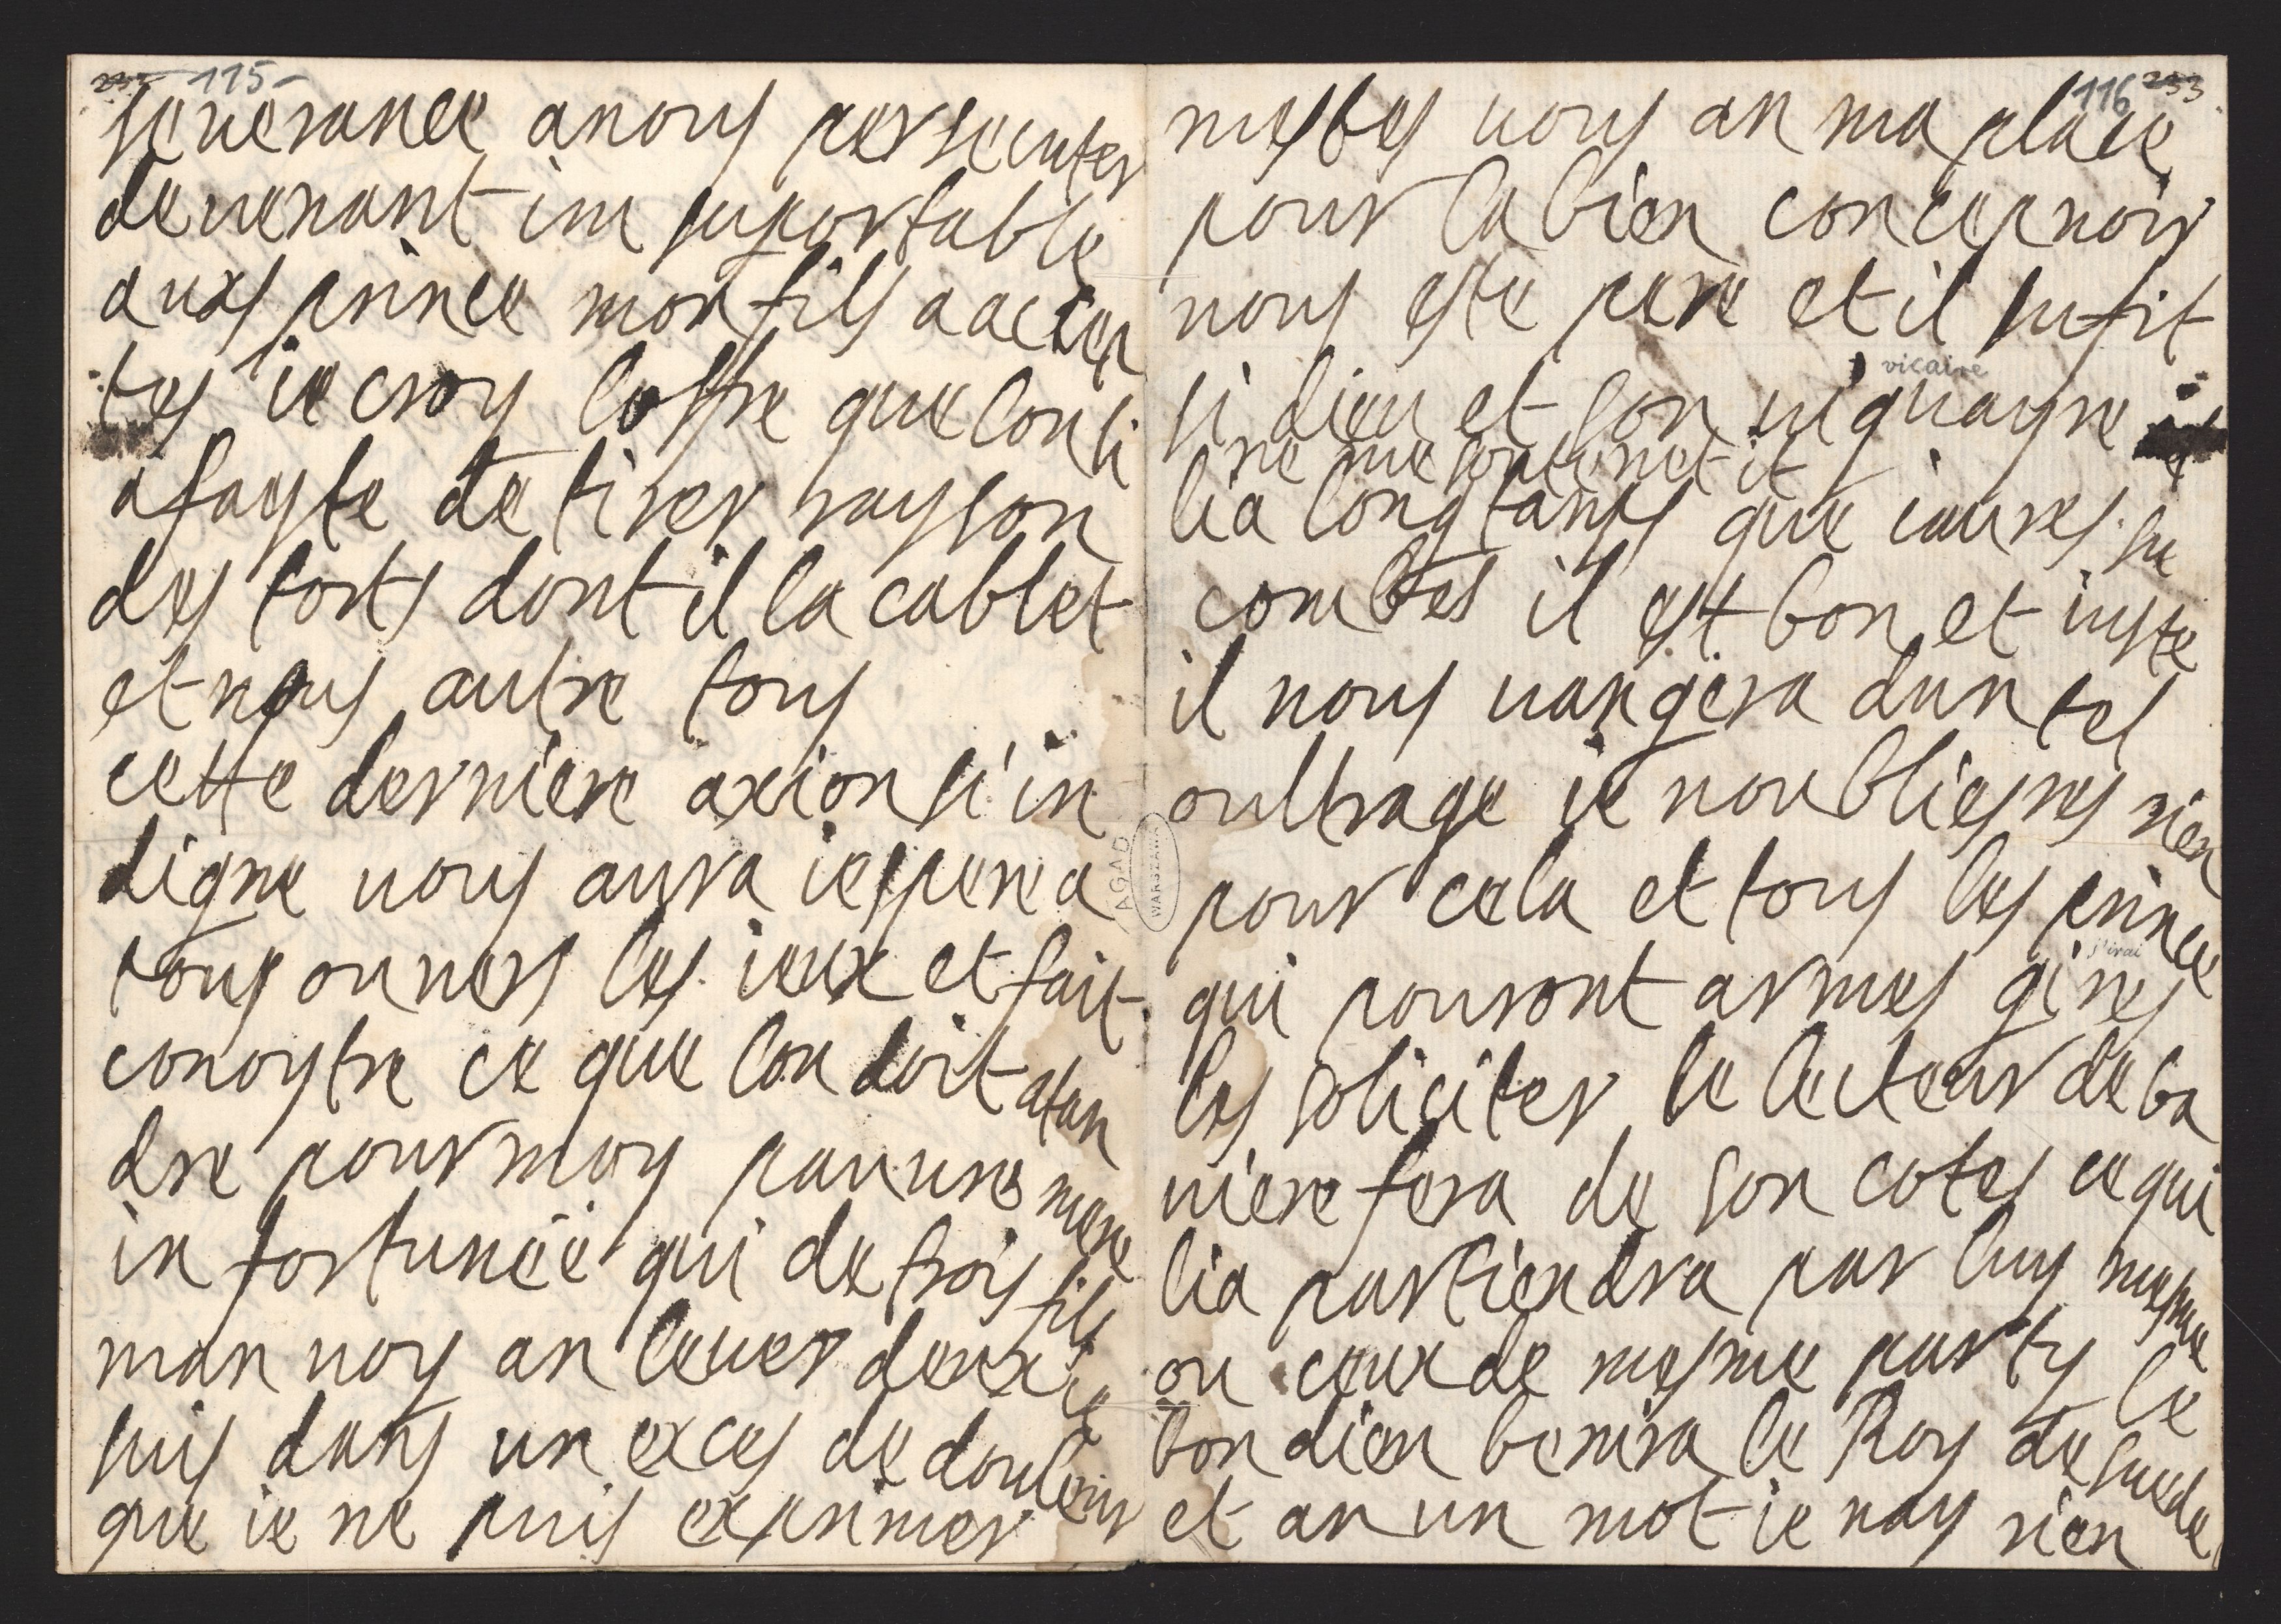 115
severance anous persecuter
devenant in suportable
auxs prince mon fils a accep
tes ie croy loffre que lon li
a fayte de tirer rayson
des torts dont il la cablet
et nous autre tous
cette derniere axion si in
digne vous aura iespere a
tous ouvers les ieux et fait
conoytre ce que lon doit atan
dre pour moy pauvre mere
in fortunée qui de trois fils
man voy an lever deux ie
suis dans un exces de douleur
que ie ne puis exprimer
AGAD
WARSZAWA
116 233
mestes vous an ma place
pour la bien concepvoir
vous este pere et il sufit
vicaire
si dieu et son viquayre
ne me soutenet it
lia long tamps que iaures su
combes il est bon et iuste
il nous vangera dun tel
oultrage ie noublieres rien
pour cela et tous les prince
j'irai
qui pouront armes gires
les soliciter le lecteur de ba
viere fera de son cotes ce qui
lia partiendra par luy mesme
ou ceux de mesme party le
bon dieu benira le Roy de suede
et an un mot ie nay rien